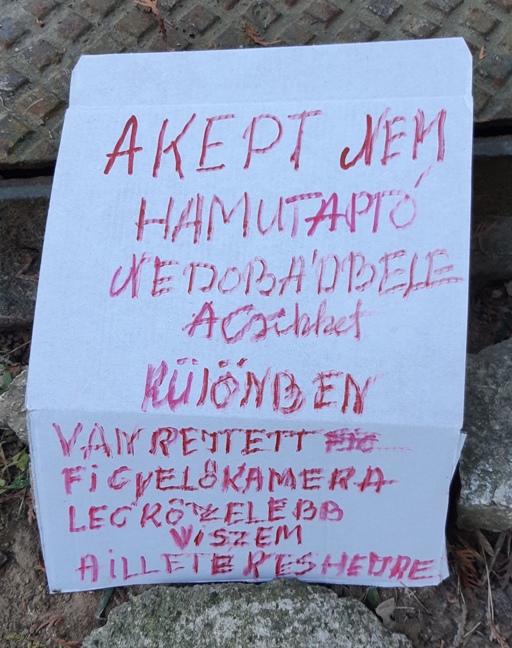 A KEPT NEM
HAMUTAPTÓ
NE DOBÁD BELE
A Csikket
KÜlÖNBEN
VAN REJTETT
FiGyELŐKAMERA
LEGKÖZELEBB
ViSZEM
A iLLETEKES HEJRE